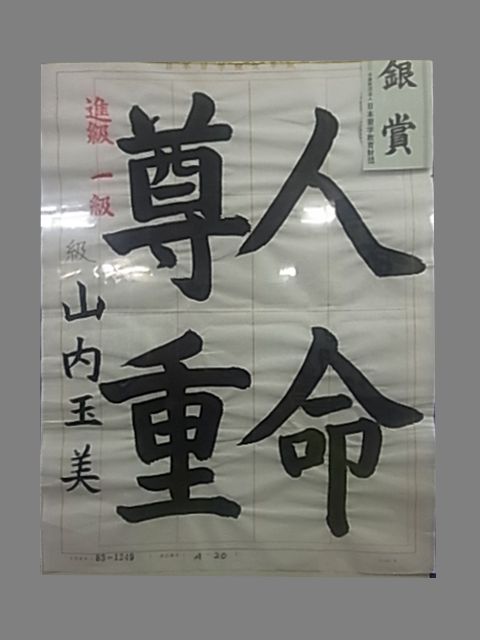 銀賞
日本習字教育財団
人命
尊重
進級 一級
級 山内玉美
83-1249
A 20